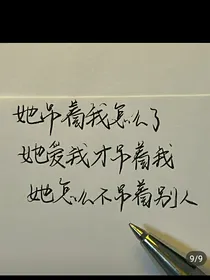 她吊着我怎么了
她爱我才吊着我
她怎么不吊着别人
9/9